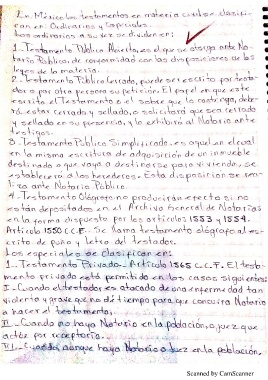 En México los testamentos en materia civil se clasifi-
can en: Ordinarios y Especiales.
Los ordinarios a su vez se dividen en:
1._Testamento Público Abierto, es el que se otorga ante No-
tario Público, de conformidad con las disposiciones de las
leyes de la materia.
2._Testamento Público Cerrado, puede ser escrito por testa-
dor o por otra persona su petición. El papel en que este
escrito el Testamento o el sobre que lo contenga, debe-
rá estar cerrado y sellado, o solicitará que sea cerrado
y sellado en su presencia, y lo exhibirá al Notario ante
testigos.
3._Testamento Público Simplificado, es aquel en el cual
en la misma escritura de adquisición de un inmueble
destinado o que vaya a destinarse para vivienda, se
establecerá a los herederos. Esta disposición se rea-
liza ante Notario Público.
4._Testamento Ológrafo no producirán efecto si no
están depositados en el Archivo General de Notarías
en la forma dispuesta por los artículos 1553 y 1554.
Artículo 1550 C.C.F._ Se llama testamento ológrafo al es-
crito de puño y letra del testador.
Los especiales se clasifican en:
1._Testamento Privado._ Artículo 1565 C.C.F. El testa-
mento privado está permitido en los casos siguientes:
I._Cuando el testador es atacado de una enfermedad tan
violenta y grave que no dé tiempo para que concurra Notario
a hacer el testamento.
II._Cuando no haya Notario en la población, o juez que
actúe por receptoría.
III._Cuando, aunque haya Notario o Juez en la población,
Scanned by CamScanner